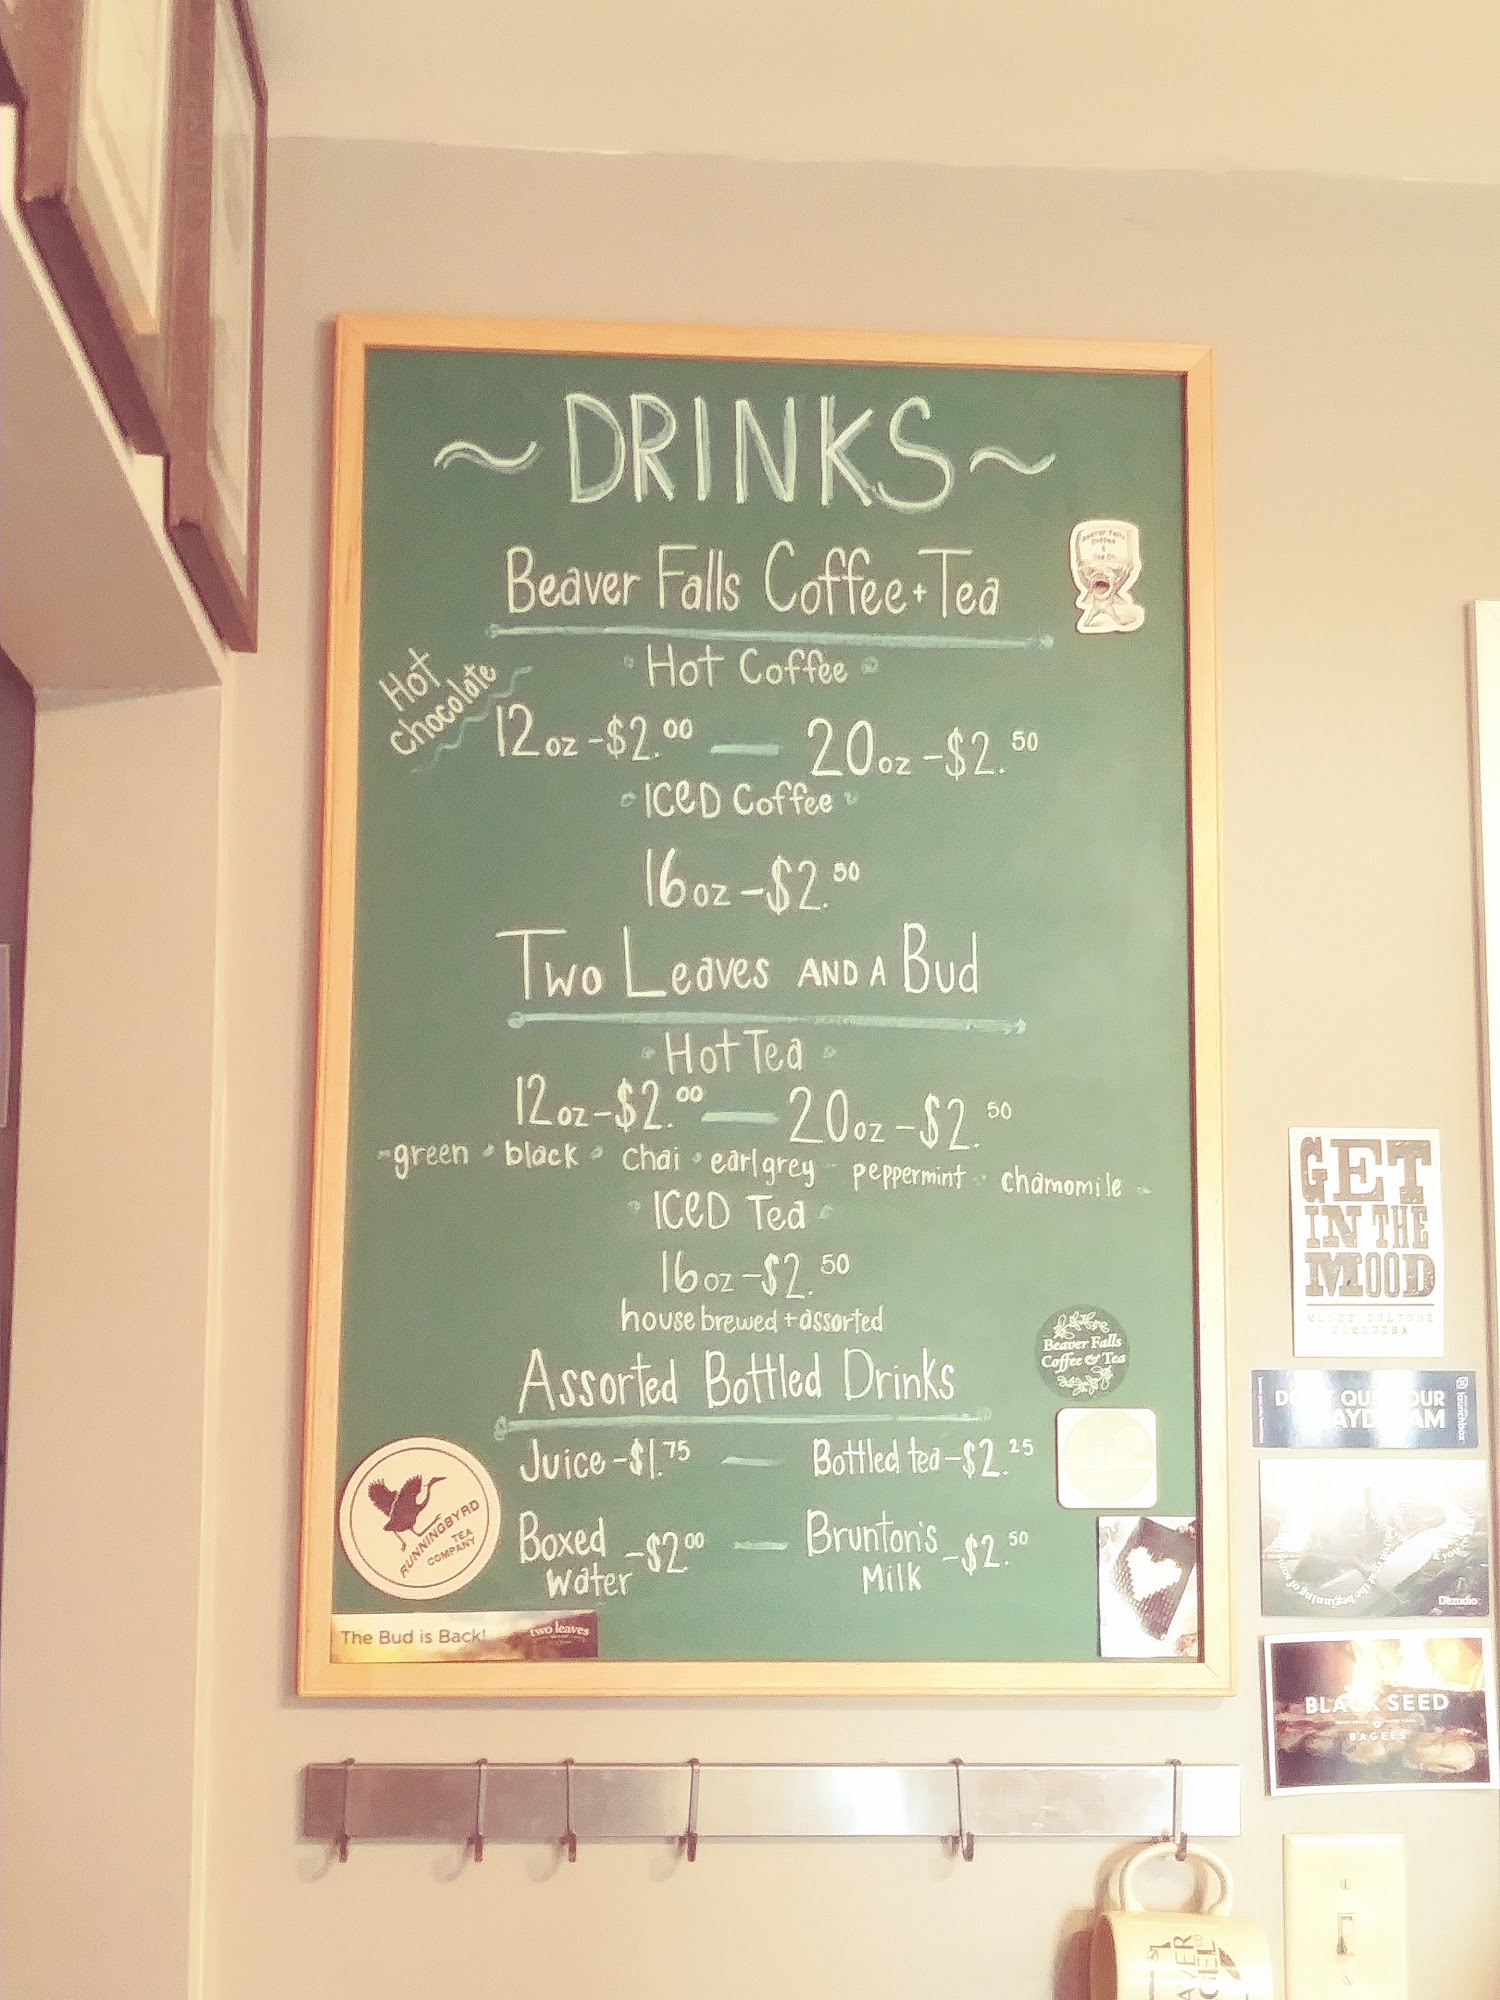 ~ DRINKS ~
Beaver Falls Coffee + Tea
Hot Coffee
Hot
chocolate
12oz - $2.00 — 20oz - $2.50
Iced Coffee
16oz - $2.50
Two Leaves AND A Bud
Hot Tea
12oz - $2.00 — 20oz - $2.50
- green • black • chai • earl grey - peppermint • chamomile -
Iced Tea
16oz - $2.50
house brewed + assorted
Assorted Bottled Drinks
Juice - $1.75 — Bottled tea - $2.25
Boxed Water - $2.00 — Brunton's Milk - $2.50
Beaver Falls
Coffee
&
Tea
Beaver Falls
Coffee & Tea
RUNNINGBYRD
TEA
COMPANY
The Bud is Back!
two leaves
GET
IN THE
MOOD
KOMBUCHA
launchbox
Dezudio
BLACK SEED
BAGELS